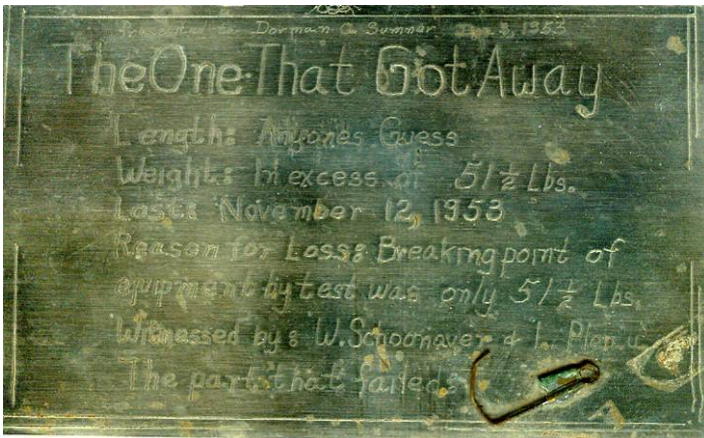 Presented to Dorman C. Summar Dec. 1953
The One That Got Away
Length: Anyones Guess
Weight: In excess of 51½ Lbs.
Lost: November 12, 1953
Reason for Loss: Breaking point of
equipment by test was only 51½ Lbs.
Witnessed by: W. Schoonaver & I.
The part that failed: